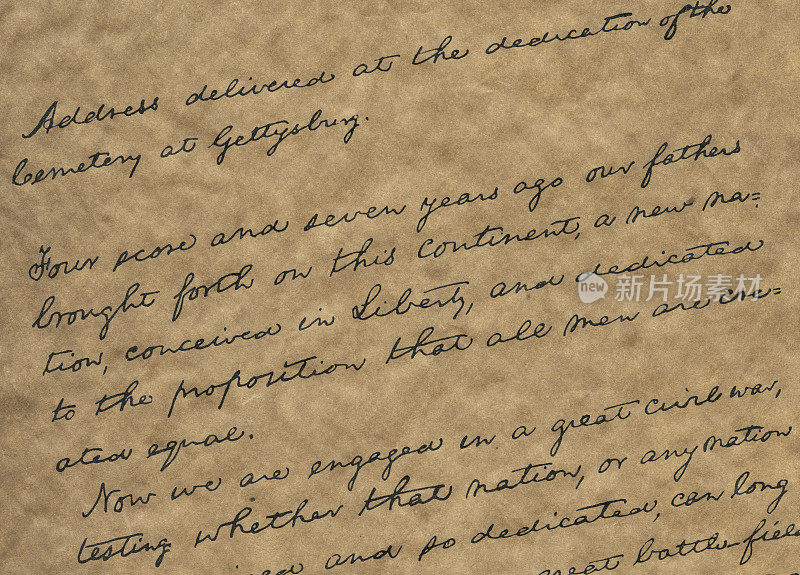 Address delivered at the dedication of the
Cemetery at Gettysburg.
Four score and seven years ago our fathers
brought forth on this continent, a new na=
tion, conceived in Liberty, and dedicated
to the proposition that all men are cre=
ated equal.
Now we are engaged in a great civil war,
testing whether that nation, or any nation
and so dedicated, can long
great battle-field
new 新片场素材